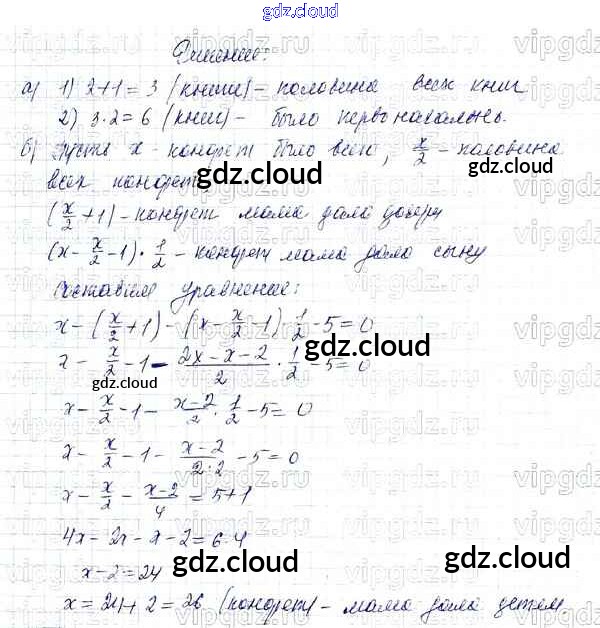 gdz.cloud
gdz.cloud
Решение:
а) 1) 2+1=3 (книги) – половина всех книг
2) 3·2=6 (книг) – было первоначально.
б) Пусть x – конфет было всего, x/2 – половина
всех конфет
(x/2+1) – конфет мама дала дочери
(x - x/2 - 1)·1/2 – конфет мама дала сыну
Составим уравнение:
x - (x/2+1) - (x - x/2 - 1) 1/2 - 5 = 0
x - x/2 - 1 - 2x-x-2/2 · 1/2 - 5 = 0
x - x/2 - 1 - x-2/2 · 1/2 - 5 = 0
x - x/2 - 1 - x-2/2·2 - 5 = 0
x - x/2 - x-2/4 = 5+1
4x - 2x - x - 2 = 6·4
x - 2 = 24
x = 24+2 = 26 (конфет) – мама дала детям
gdz.cloud
gdz.cloud
gdz.cloud
gdz.cloud
gdz.cloud
gdz.cloud
gdz.cloud
gdz.cloud